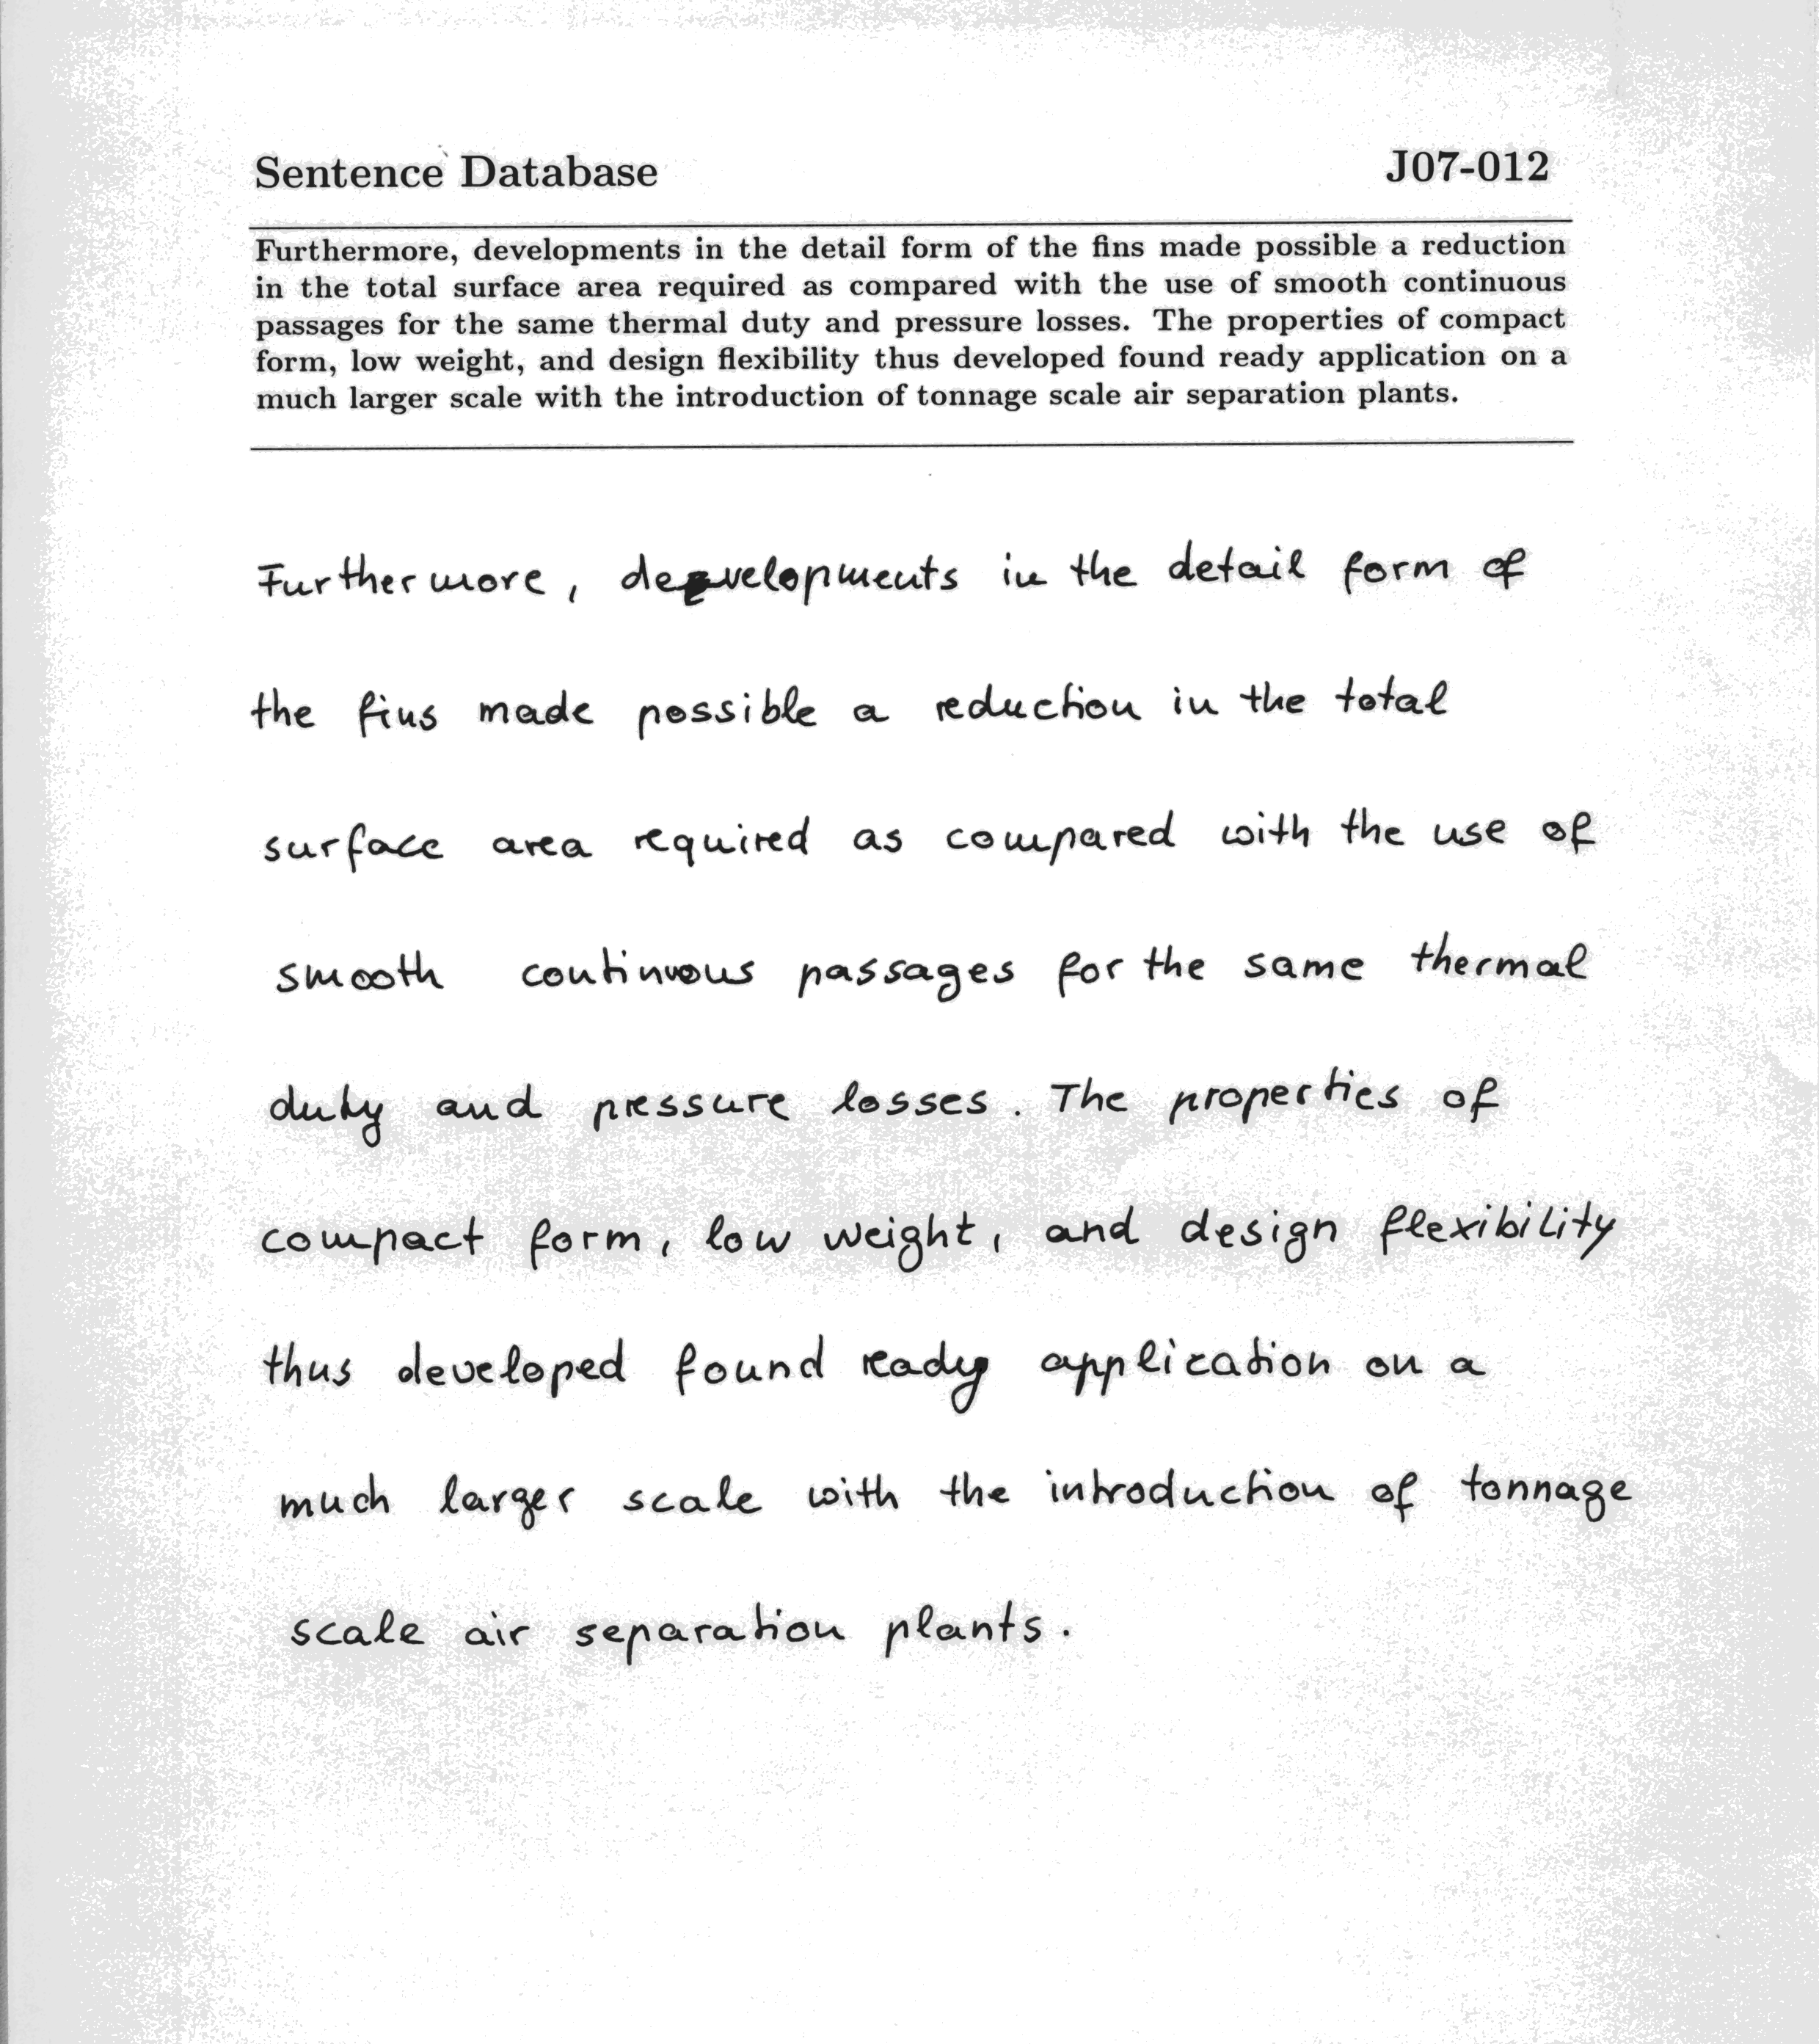 Sentence Database
J07-012
Furthermore, developments in the detail form of the fins made possible a reduction
in the total surface area required as compared with the use of smooth continuous
passages for the same thermal duty and pressure losses. The properties of compact
form, low weight, and design flexibility thus developed found ready application on a
much larger scale with the introduction of tonnage scale air separation plants.
Furthermore, developments in the detail form of
the fins made possible a reduction in the total
surface area required as compared with the use of
smooth continuous passages for the same thermal
duty and pressure losses. The properties of
compact form, low weight, and design flexibility
thus developed found ready application on a
much larger scale with the introduction of tonnage
scale air separation plants.